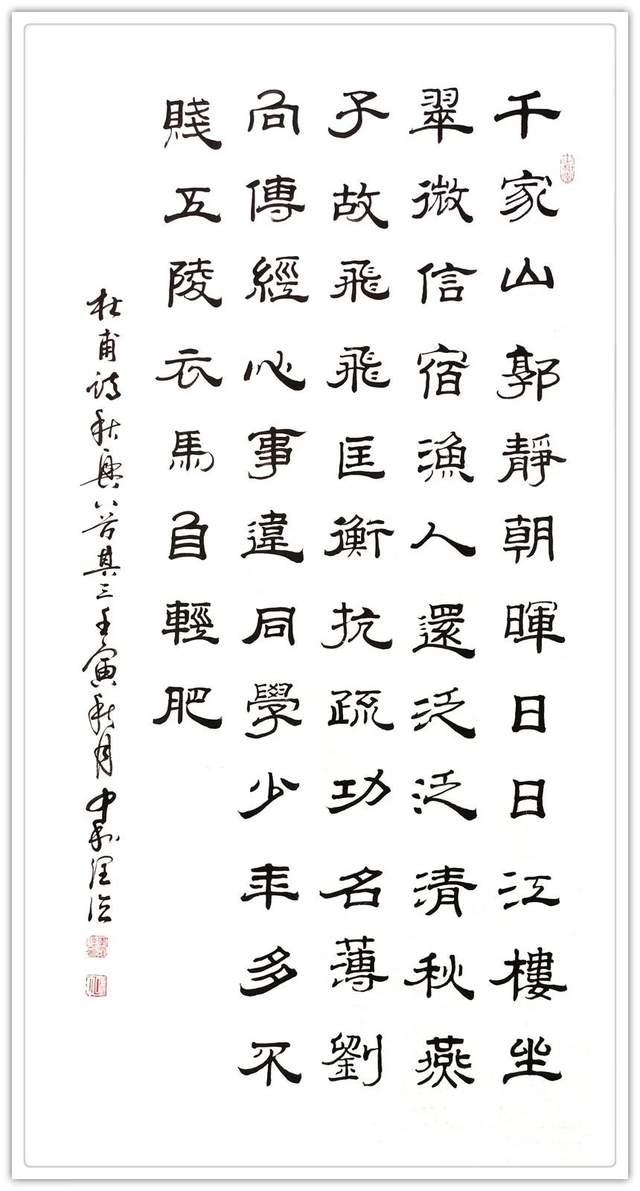 千家山郭靜朝暉日日江樓坐
翠微信宿漁人還泛泛清秋燕
子故飛飛匡衡抗疏功名薄劉
向傳經心事違同學少年多不
賤五陵衣馬自輕肥
杜甫诗秋興八首其三壬寅秋月中和